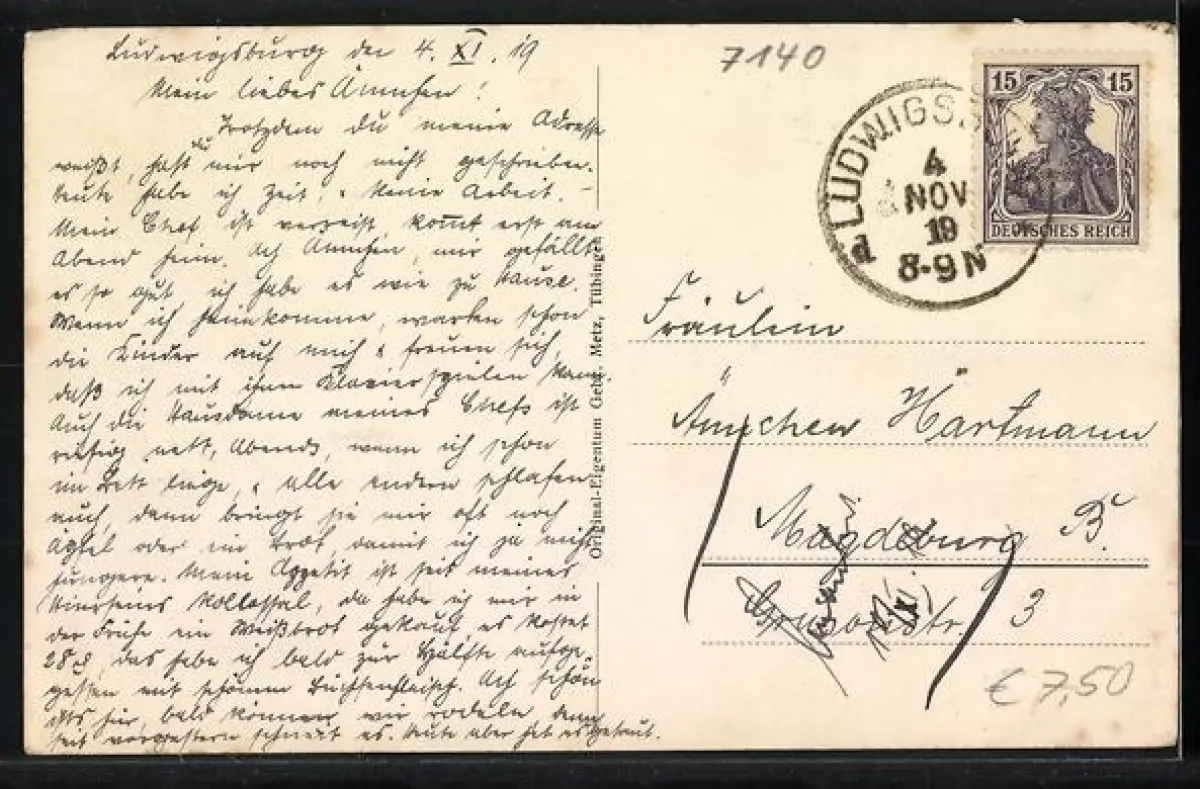 Ludwigsburg den 4. XI. 19
Mein liebes Ännchen!
Trotzdem du meine Adresse
weißt, hast du mir noch nicht geschrieben.
Heute habe ich Zeit, keine Arbeit. –
Mein Chef ist verreist, kom̅t erst am
Abend heim. Ach Ännchen, mir gefällt
es so gut, ich habe es wie zu Hause.
Wenn ich heimkomme, warten schon
die Kinder auf mich & freuen sich,
daß ich mit ihnen Klavierspielen kann.
Auch die Hausdame meines Chefs ist
richtig nett, Abends, wenn ich schon
im Bett liege, & alle andern schlafen
auch, dann bringt sie mir oft noch
Äpfel oder ein Brot, damit ich ja nicht
hungere. Mein Appetit ist seit meines
Hierseins kollossal, da habe ich mir in
der Frühe ein Weißbrot gekauft es kostet
28 ₰, das habe ich bald zur Hälfte aufge-
gessen mit schönem Büchsenfleisch. Ach schön
ists hier, bald können wir rodeln denn
seit vorgestern schneit es. Heute aber hat es getaut.
Original-Eigentum Gebr. Metz, Tübingen
7140
LUDWIGSB
4
NOV
19
8-9N
15 15
DEUTSCHES REICH
Fräulein
Ännchen Hartmann
Magdeburg B.
Grusonstr. 3
€ 7,50